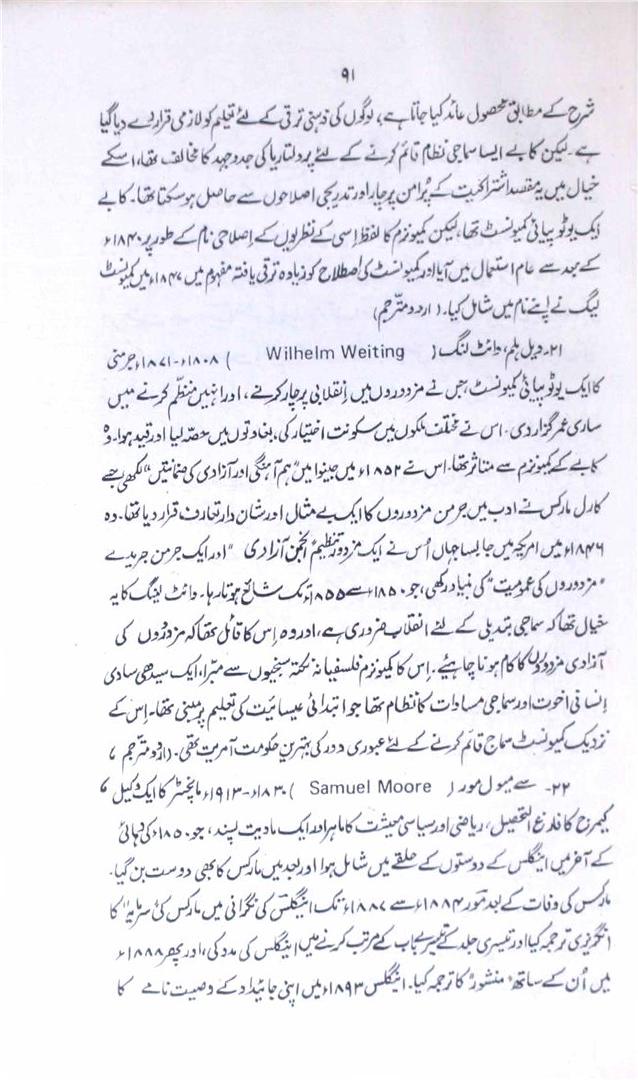 ۹۱
شرح کے مطابق محصول عائد کیا جاتا ہے، لوگوں کی ذہنی ترقی کے لئے تعلیم کو لازمی قرار دے دیا گیا
ہے۔ لیکن کابے ایسا سماجی نظام قائم کرنے کے لئے پرولتاریا کی جدوجہد کا مخالف تھا، اسکے
خیال میں یہ مقصد اشتراکیت کے پُرامن پرچار اور تدریجی اصلاحوں سے حاصل ہو سکتا تھا۔ کابے
ایک یوٹوپیائی کمیونسٹ تھا، لیکن کمیونزم کا لفظ اِسی کے نظریوں کے اِصلاحی نام کے طور پر ۱۸۴۰ء
کے بعد سے عام استعمال میں آیا اور کمیونسٹ کی اصطلاح کو زیادہ ترقی یافتہ مفہوم میں ۱۸۴۷ء میں کمیونسٹ
لیگ نے اپنے نام میں شامل کیا۔ (اردو مترجم)
۲۱۔ ویل ہلم، وائٹ لنگ ( Wilhelm Weiting ) ۱۸۰۸ء-۱۸۷۱ء جرمنی
کا ایک یوٹوپیائی کمیونسٹ، جس نے مزدوروں میں اِنقلابی پرچار کرنے، اور انہیں منظّم کرنے میں
ساری عمر گزار دی۔ اس نے مختلف ملکوں میں سکونت اختیار کی، بغاوتوں میں حصہ لیا اور قید ہوا۔ وہ
کابے کے کمیونزم سے متاثر تھا۔ اس نے ۱۸۵۲ء میں جینوا میں "ہم آہنگی اور آزادی کی ضمانتیں" لکھی جسے
کارل مارکس نے ادب میں جرمن مزدوروں کا ایک بے مثال اور شان دار تعارف قرار دیا تھا۔ وہ
۱۸۴۶ء میں امریکہ میں جا بسا جہاں اُس نے ایک مزدور تنظیم "انجمن آزادی" اور ایک جرمن جریدے
"مزدوروں کی عمومیت" کی بنیاد رکھی، جو ۱۸۵۰ء سے ۱۸۵۵ء تک شائع ہوتا رہا۔ وائٹ لینگ کا یہ
خیال تھا کہ سماجی تبدیلی کے لئے انقلاب ضروری ہے، اور وہ اِس کا قائل تھا کہ مزدوروں کی
آزادی مزدوروں کا کام ہونا چاہیئے۔ اِس کا کمیونزم فلسفیانہ نکتہ سنجیوں سے مبرا، ایک سیدھی سادی
اِنسانی اخوت اور سماجی مساوات کا نظام تھا جو ابتدائی عیسائیت کی تعلیم پر مبنی تھا۔ اِس کے
نزدیک کمیونسٹ سماج قائم کرنے کے لئے عبوری دور کی بہترین حکومت آمریت تھی۔ (اردو مترجم)
۲۲۔ سے میول مور ( Samuel Moore ) ۱۸۳۰ء-۱۹۱۳ء مانچسٹر کا ایک وکیل،
کیمرج کا فارغ التحصیل، ریاضی اور سیاسی معیشت کا ماہر اور ایک مادیت پسند، جو ۱۸۵۰ء کی دہائی
کے آخر میں اینگلس کے دوستوں کے حلقے میں شامل ہوا اور بعد میں مارکس کا بھی دوست بن گیا۔
مارکس کی وفات کے بعد مور ۱۸۸۴ء سے ۱۸۸۷ء تک اینگلس کی نگرانی میں مارکس کی "سرمایہ" کا
انگریزی ترجمہ کیا اور تیسری جلد کے تیسرے باب کے مرتب کرنے میں اینگلس کی مدد کی، اور پھر ۱۸۸۸ء
میں اُن کے ساتھ "منشور" کا ترجمہ کیا۔ اینگلس ۱۸۹۳ء میں اپنی جائیداد کے وصیت نامے کا